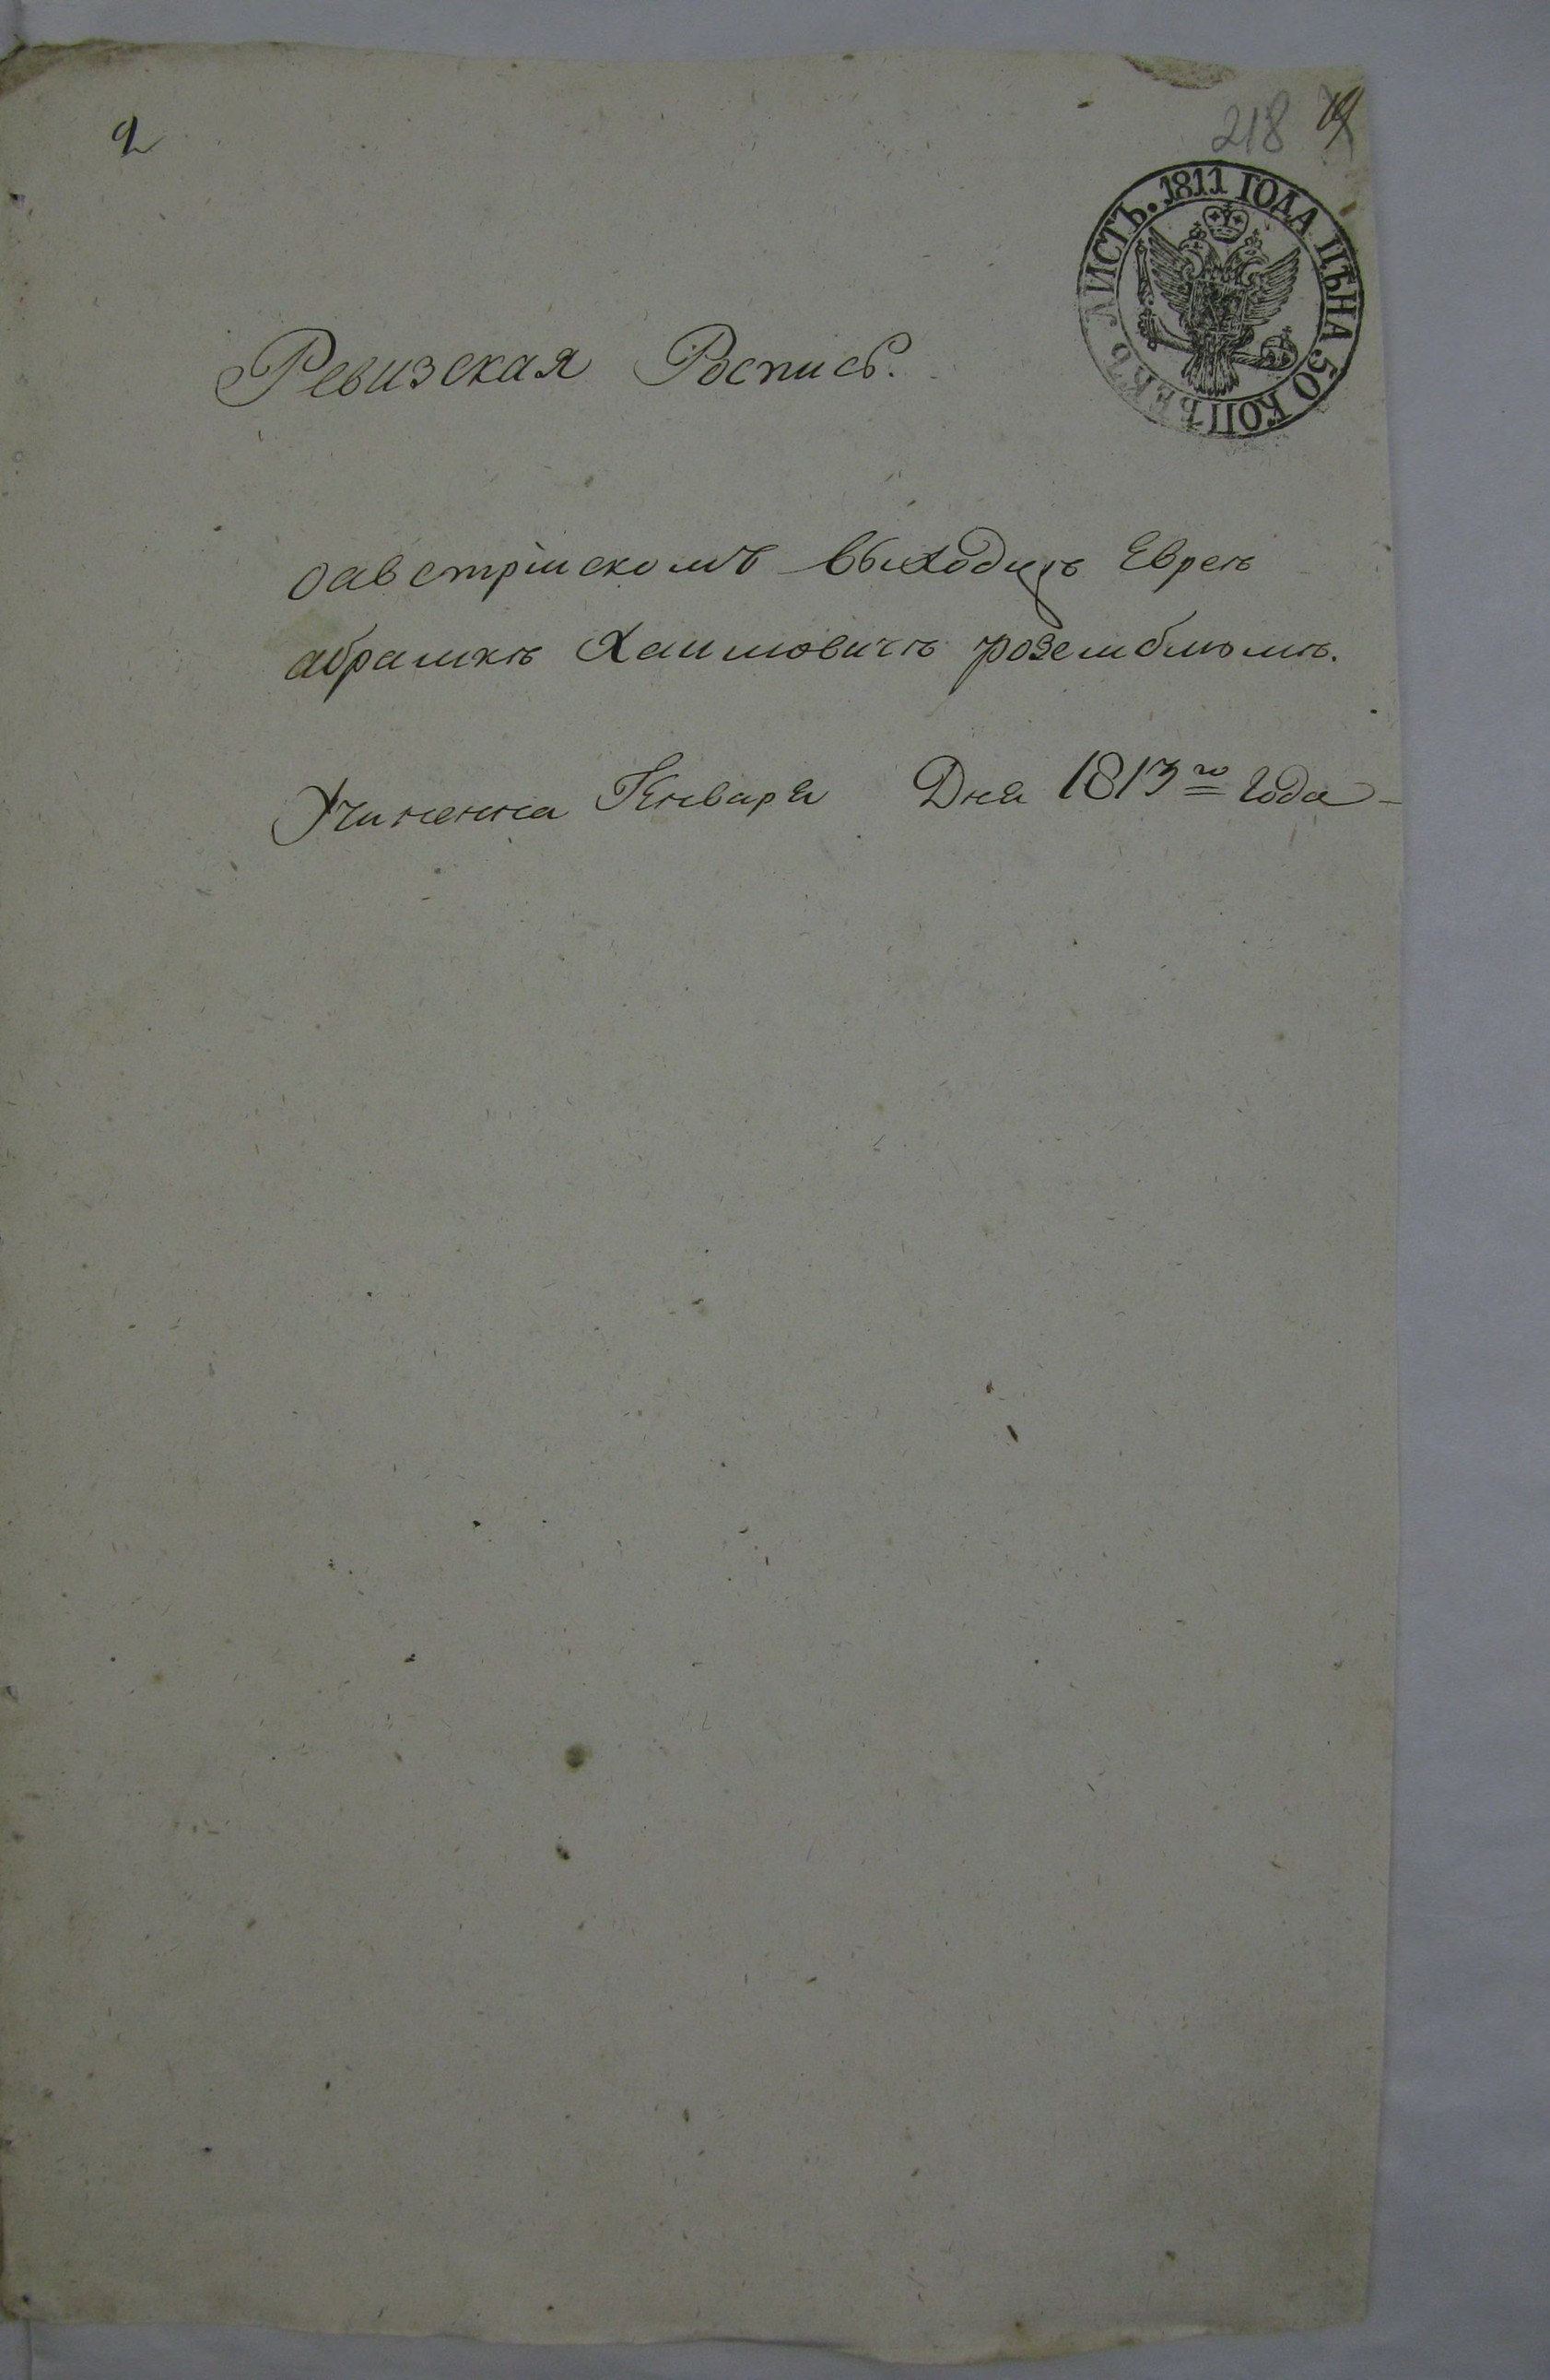 2
218
ЛИСТЪ. 1811 ГОДА ЦѢНА 50 КОПѢЕКЪ
Ревизская Роспись.
оавстрійскомъ выходцѣ Евреѣ
абрамкѣ Хаимовичѣ роземблюмѣ.
Учиненна Генваря Дня 1813го года